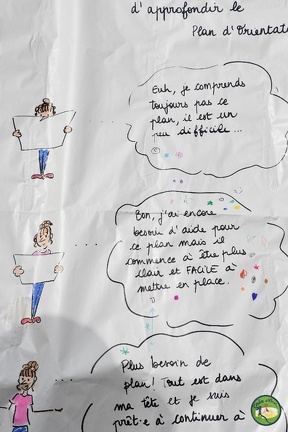 d'approfondir le
Plan d'Orientat
Euh, je comprends
toujours pas ce
plan, il est un
peu difficile...
Bon, j'ai encore
besoin d'aide pour
ce plan mais il
commence à être plus
clair et FACILE à
mettre en place.
Plus besoin de
plan! Tout est dans
ma tête et je suis
prêt·e à continuer à